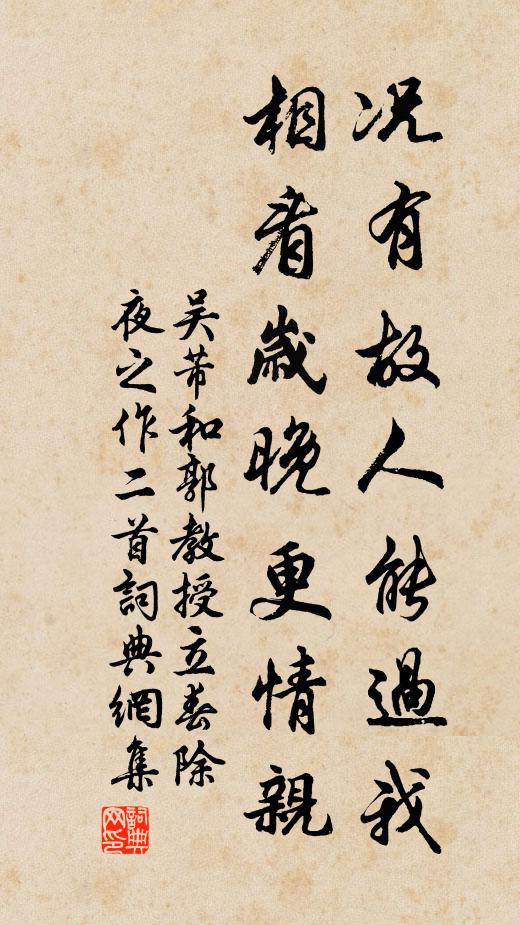 况有故人能過我
相看歲晚更情親
吴芾和郭教授立春除
夜之作二首詞典網集
詞典
网印